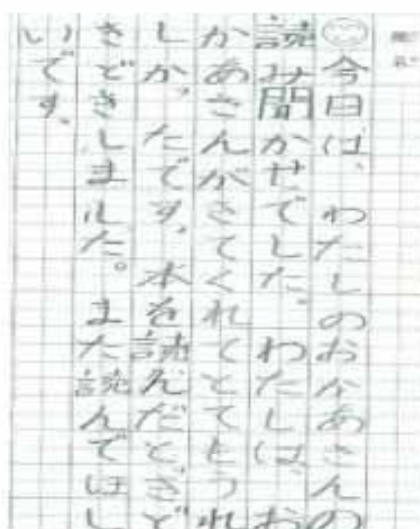 今日は、わたしのおかあさんの
読み聞かせでした。わたしは、お
かあさんがきてくれてとてもうれ
しか、たです、本を読んだとき、ど
きどきしました。また読んでほし
いです。